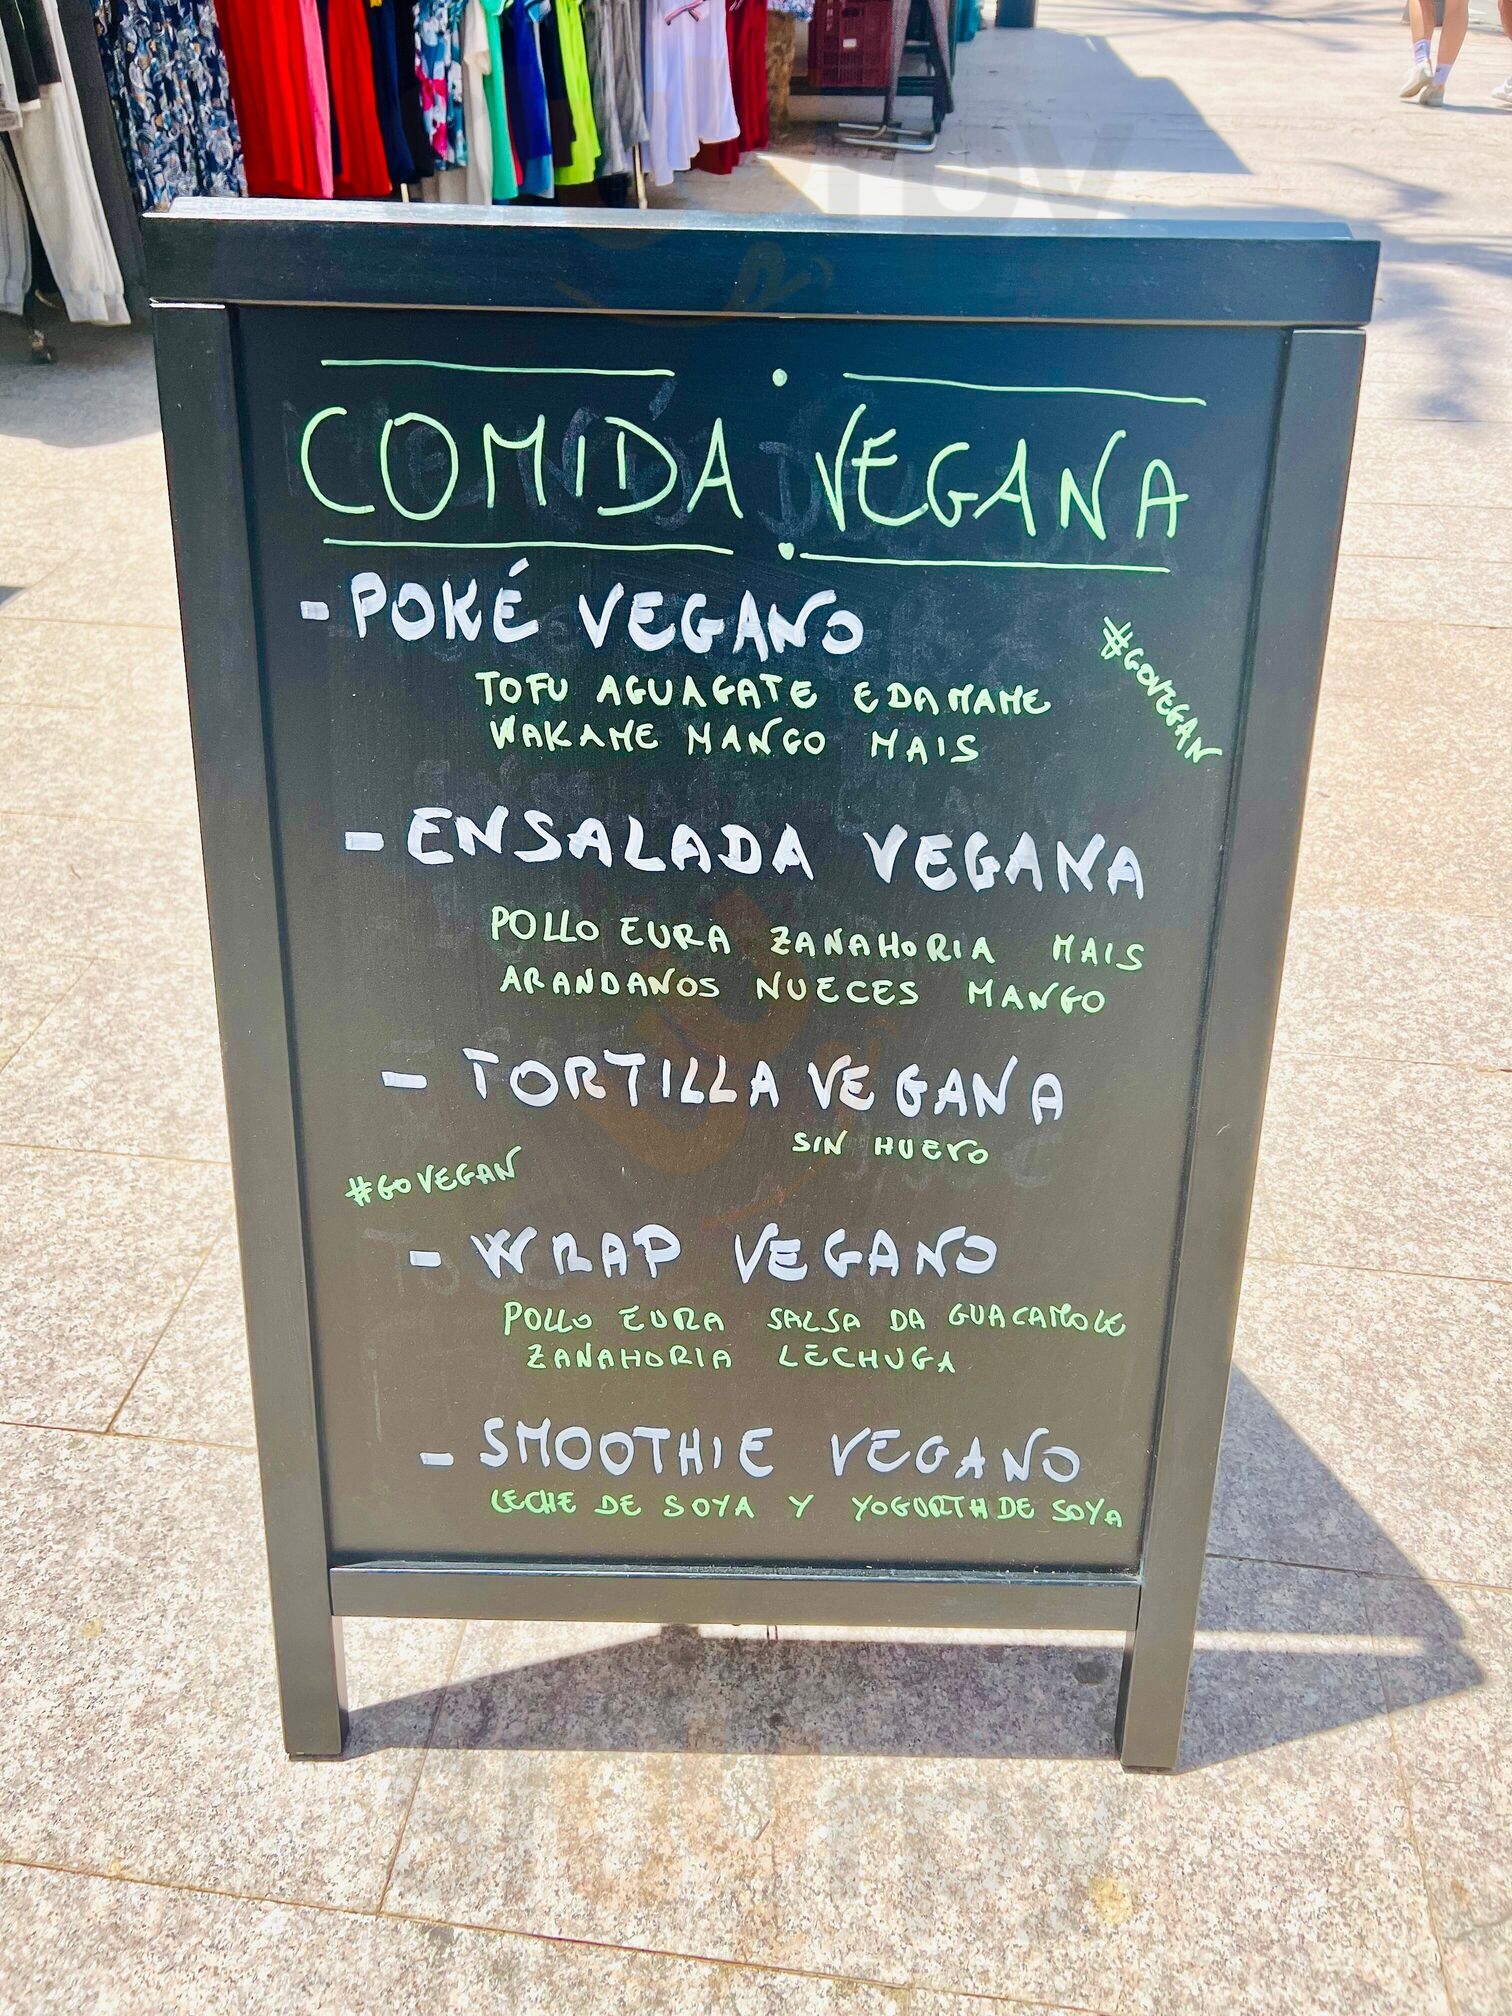 COMIDA VEGANA
- POKÉ VEGANO
#GOVEGAN
TOFU AGUAGATE EDAMAME
WAKAME MANGO MAIS
- ENSALADA VEGANA
POLLO EURA ZANAHORIA MAIS
ARANDANOS NUECES MANGO
- TORTILLA VEGANA
SIN HUEVO
#GOVEGAN
- WRAP VEGANO
POLLO EURA SALSA DA GUACAMOLE
ZANAHORIA LECHUGA
- SMOOTHIE VEGANO
LECHE DE SOYA Y YOGURTH DE SOYA